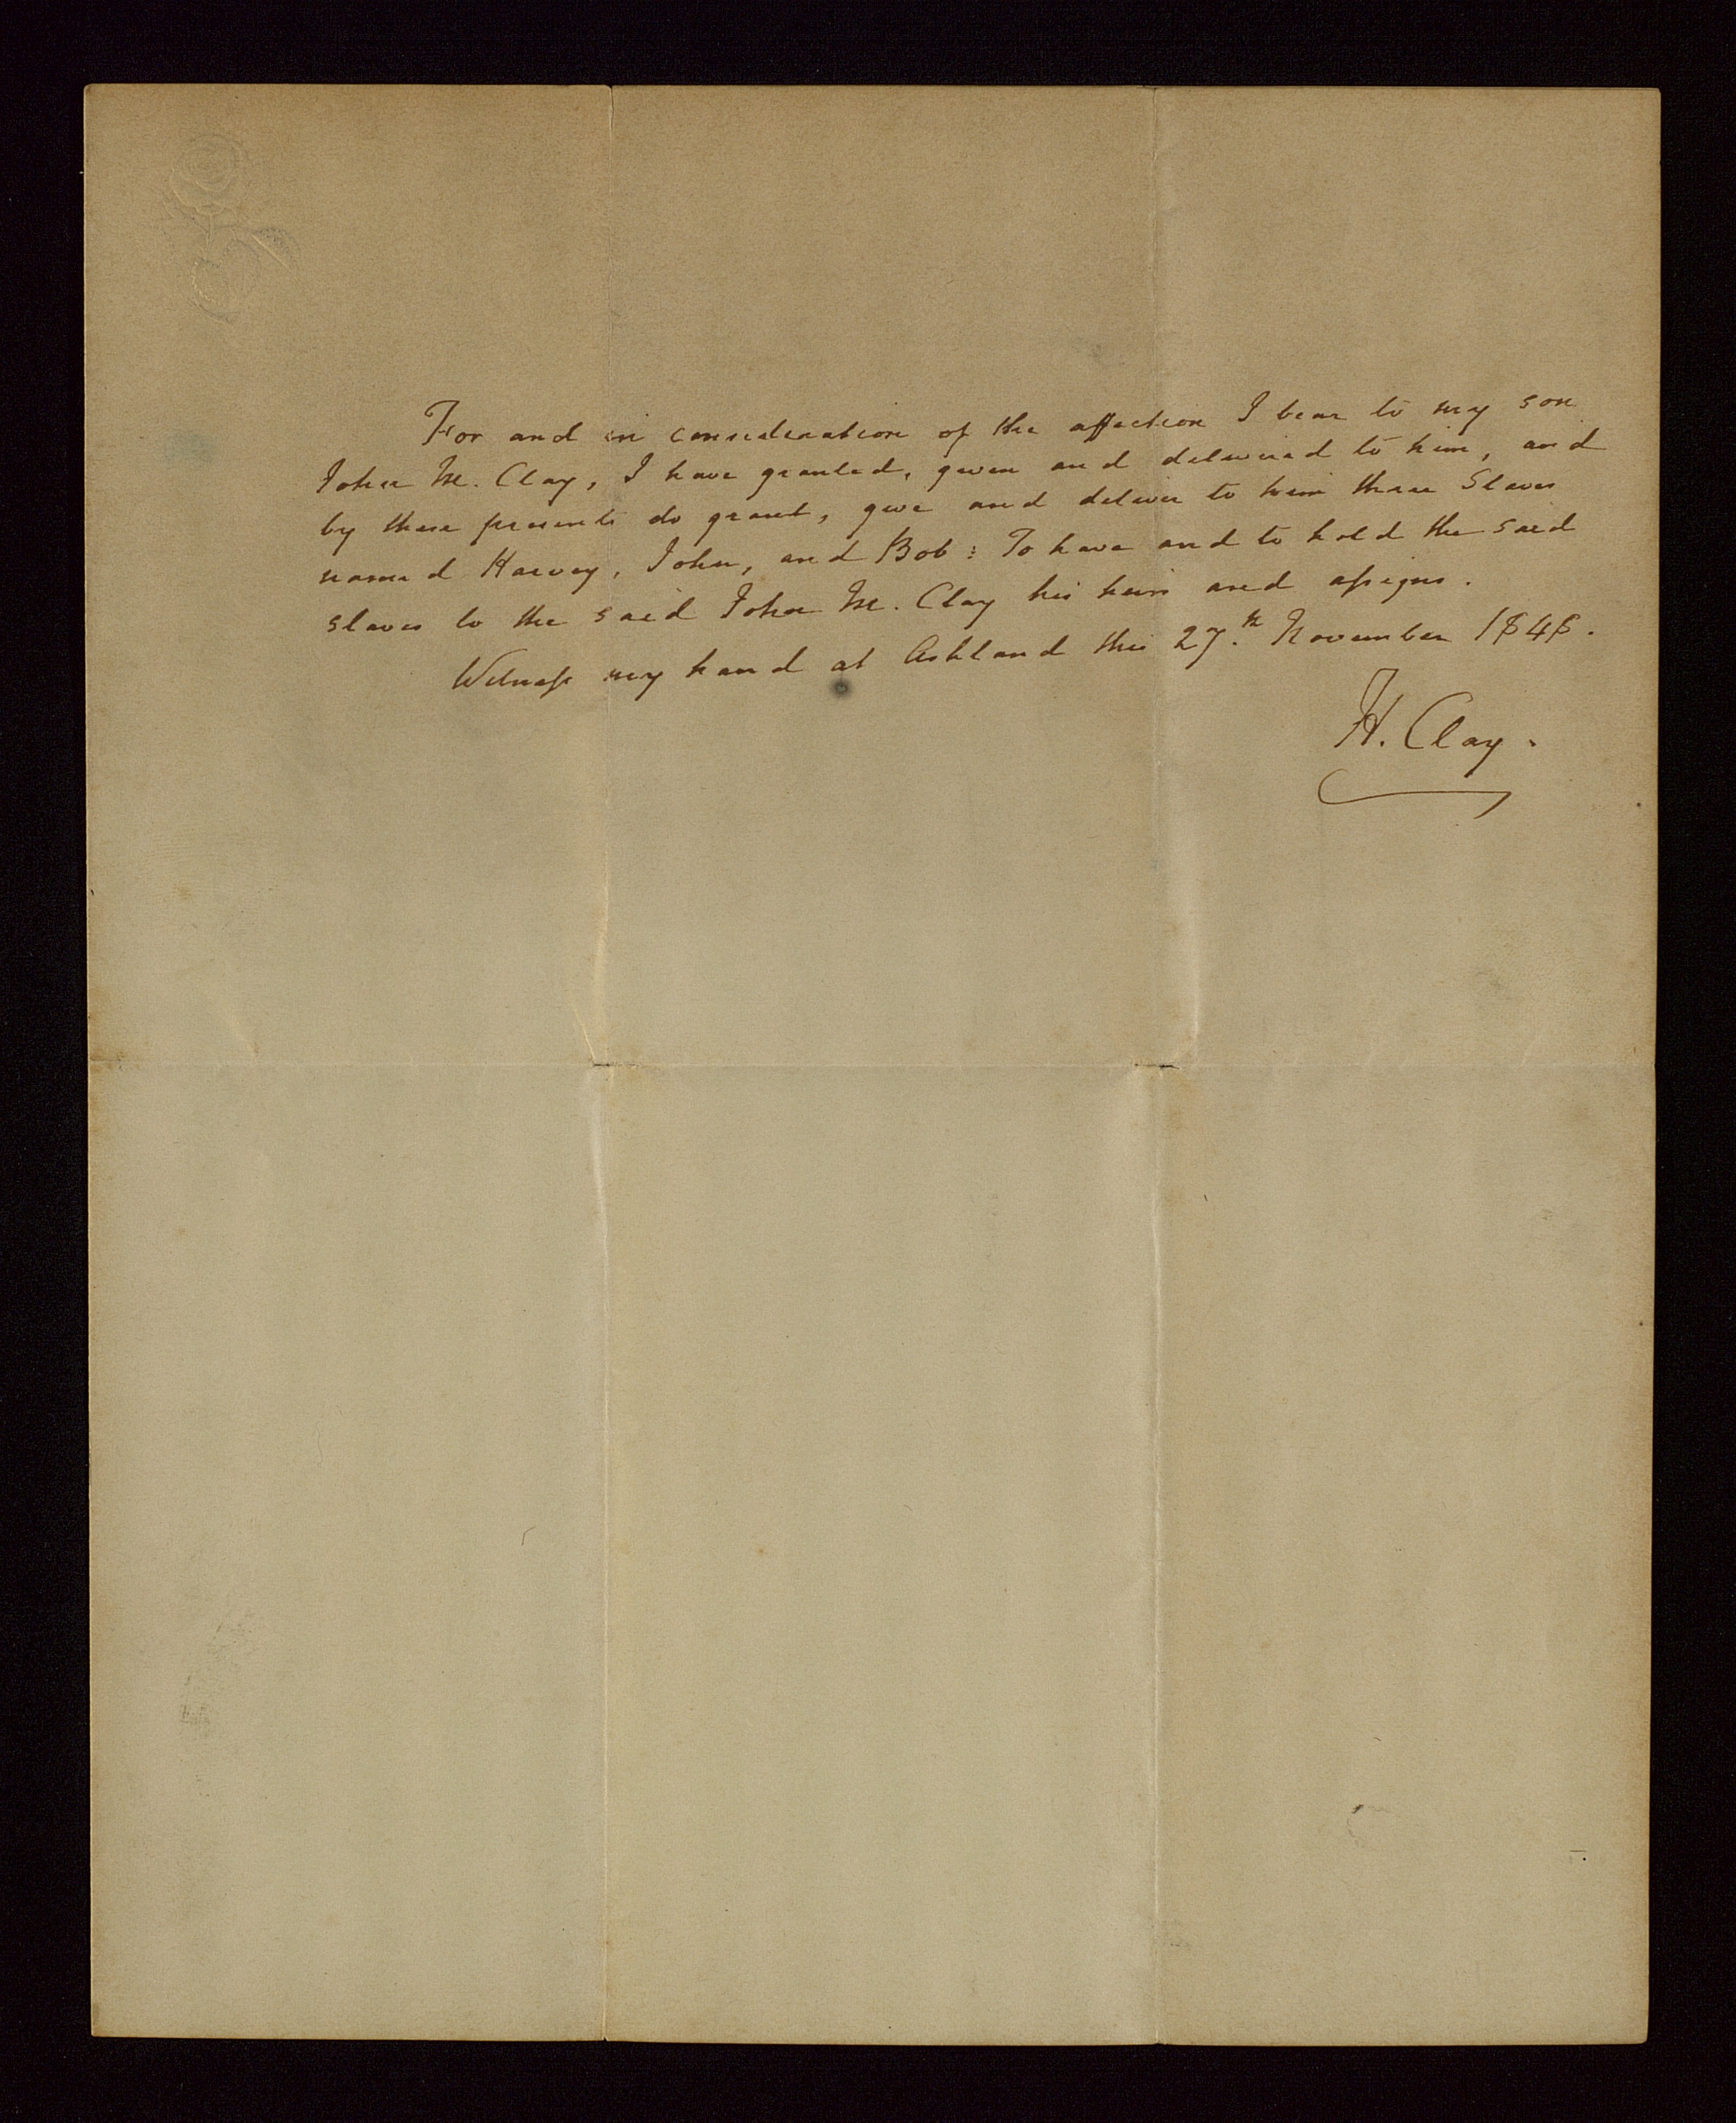 For and in consideration of the affection I bear to my son
John M. Clay, I have granted, given and delivered to him, and
by these presents do grant, give and deliver to him three Slaves
named Harvey, John, and Bob: To have and to hold the said
slaves to the said John M. Clay his heirs and assigns.
Witness my hand at Ashland this 27.th November 1848.
H. Clay.